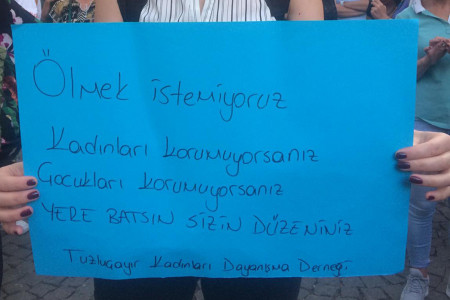 Ölmek istemiyoruz
Kadınları korumuyorsanız
Çocukları korumuyorsanız
YERE BATSIN SİZİN DÜZENİNİZ
Tuzluçayır Kadınları Dayanışma Derneği